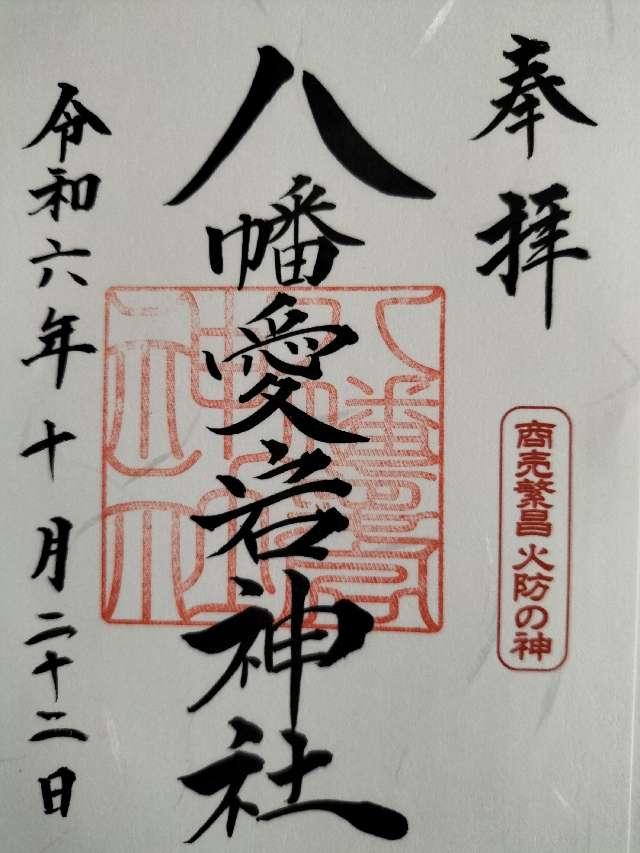 奉拝
商売繁昌 火防の神
八幡愛宕神社
令和六年十月二十二日